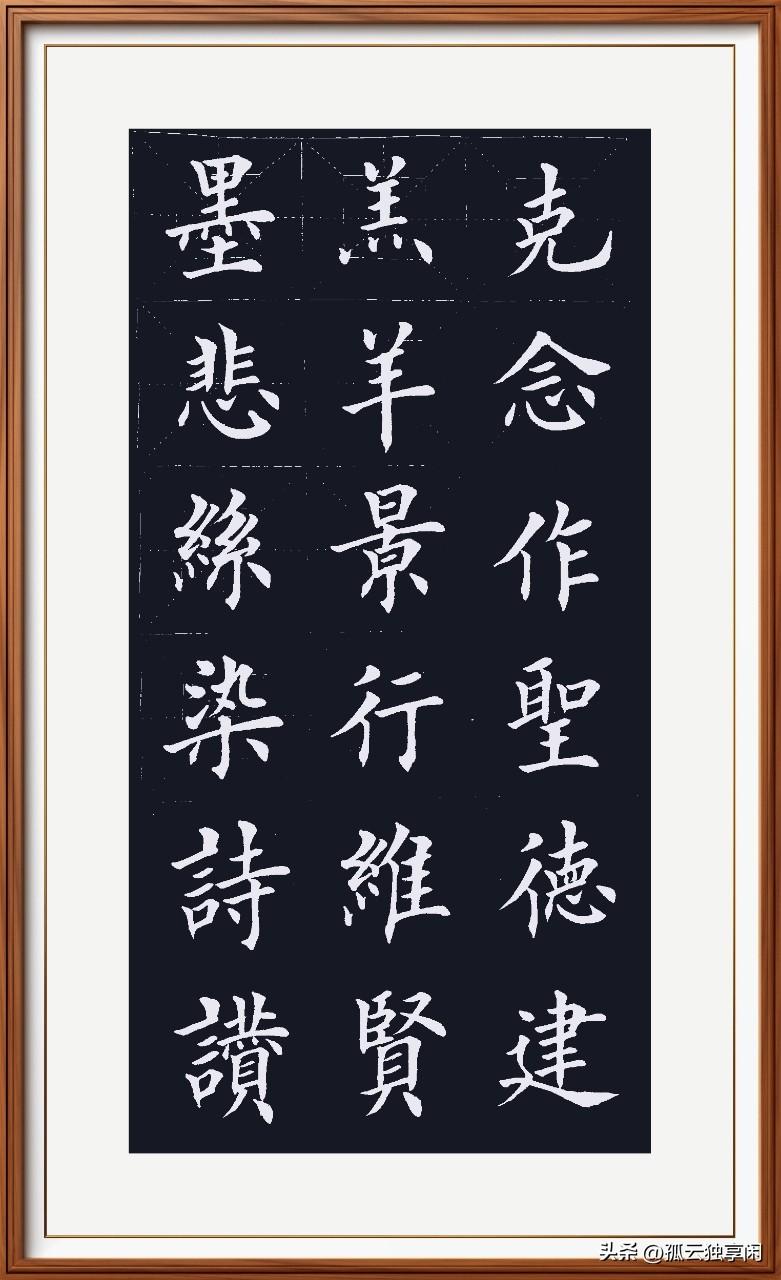 墨悲絲染詩讚
羔羊景行維賢
克念作聖德建
头条 @孤云独享闲